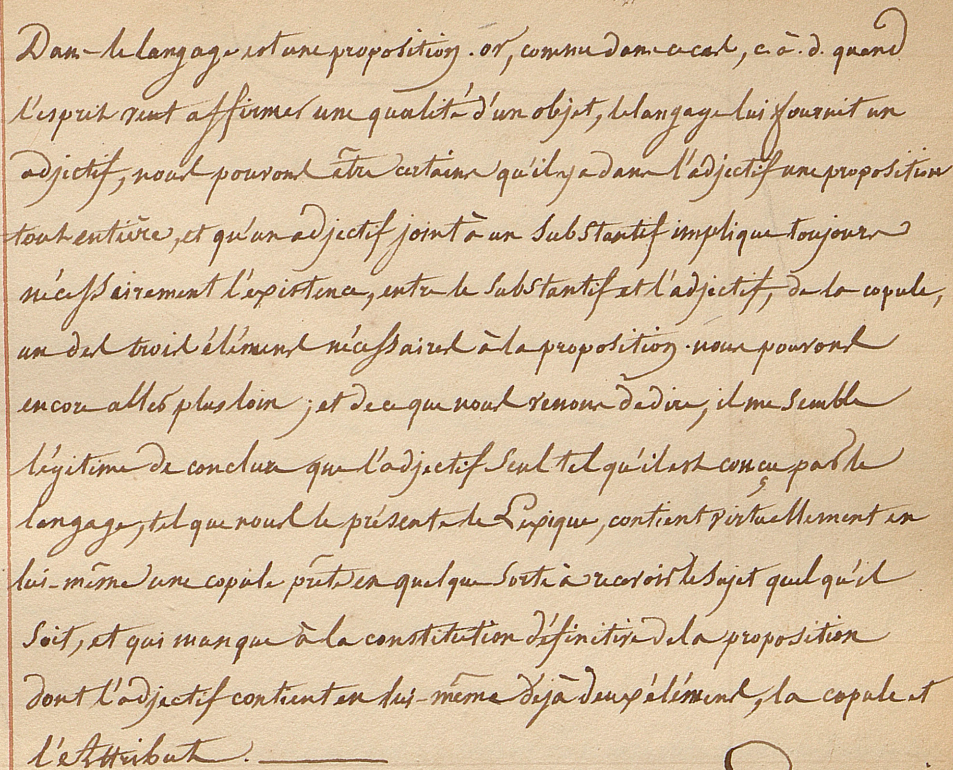 Dans le langage est une proposition. or, comme dans ce cas, c. à. d. quand
l'esprit veut affirmer une qualité d'un objet, le langage lui fournit un
adjectif, nous pouvons être certains qu'il y a dans l'adjectif une proposition
tout entière, et qu'un adjectif joint à un substantif implique toujours
nécessairement l'existence, entre le substantif et l'adjectif, de la copule,
un des trois éléments nécessaires à la proposition. nous pouvons
encore aller plus loin ; et de ce que nous venons de dire, il me semble
légitime de conclure que l'adjectif seul tel qu'il est conçu par le
langage, tel que nous le présente le Lexique, contient virtuellement en
lui-même une copule prête en quelque sorte à recevoir le sujet quel qu'il
soit, et qui manque à la constitution définitive de la proposition
dont l'adjectif contient en lui-même déjà deux éléments, la copule et
l'attribut. —